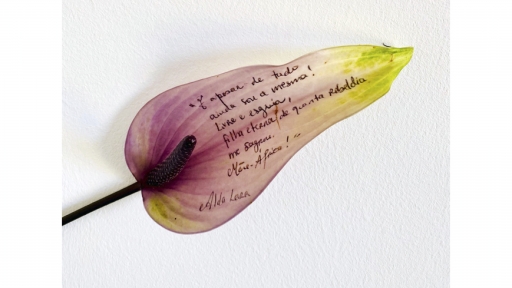 "E apesar de tudo,
ainda sou a mesma!
Livre e esguia,
filha eterna de quanta rebeldia
me sagrou.
Mãe-África!"
Alda Lara